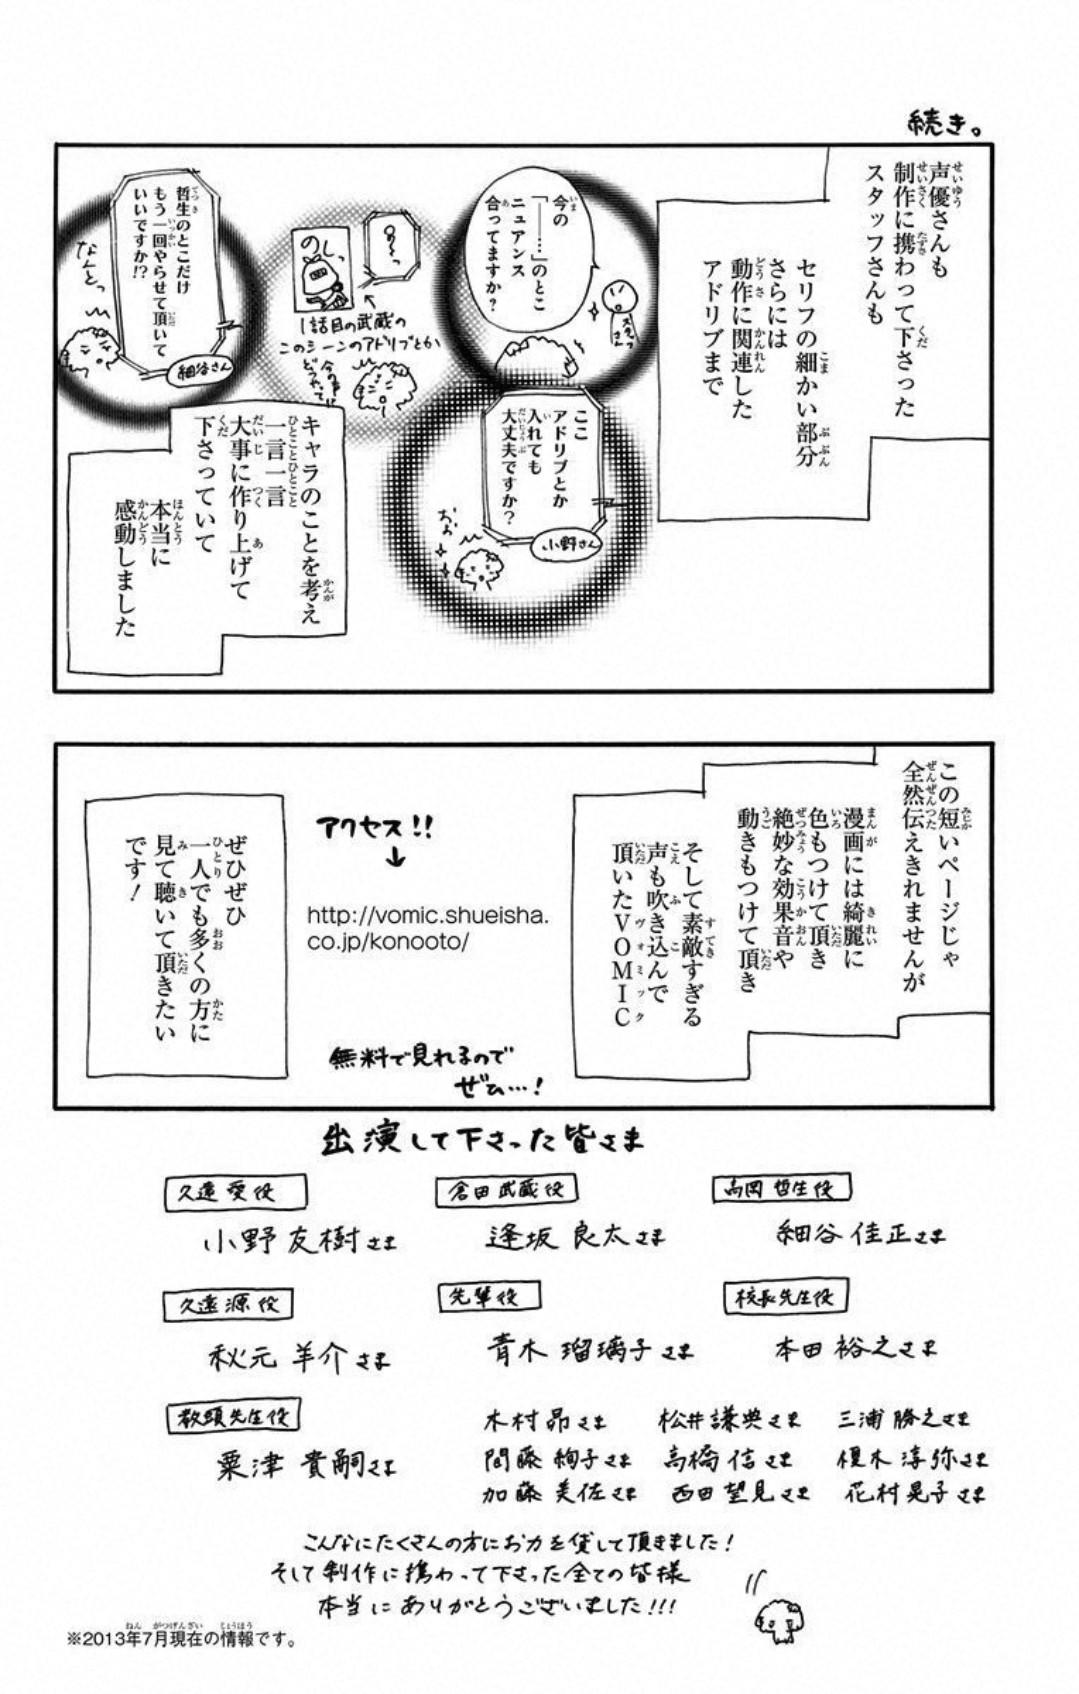 続き。
声優さんも
制作に携わって下さった
スタッフさんも
セリフの細かい部分
さらには
動作に関連した
アドリブまで
今の
「――……」のとこ
ニュアンス
合ってますか？
スタッフさん
の〜っ
のしっ
1話目の武蔵の
このシーンのアドリブとか
哲生のとこだけ
もう一回やらせて頂いて
いいですか!?
細谷さん
なんとっ
ここ
アドリブとか
入れても
大丈夫ですか？
小野さん
おぉ
キャラのことを考え
一言一言
大事に作り上げて
下さっていて
本当に
感動しました
この短いページじゃ
全然伝えきれませんが
漫画には綺麗に
色もつけて頂き
絶妙な効果音や
動きもつけて頂き
そして素敵すぎる
声も吹き込んで
頂いたVOMIC
アクセス!!
↓
http://vomic.shueisha.
co.jp/konooto/
無料で見れるので
ぜひ…!
ぜひぜひ
一人でも多くの方に
見て聴いて頂きたい
です！
出演して下さった皆さま
久遠 愛役
小野 友樹さま
倉田 武蔵役
逢坂 良太さま
高岡 哲生役
細谷 佳正さま
久遠 源役
秋元 羊介さま
先輩役
青木 瑠璃子さま
校長先生役
本田 裕之さま
教頭先生役
粟津 貴嗣さま
木村 昴さま 松井謙典さま 三浦 勝之さま
間藤 絢子さま 高橋 信さま 榎木 淳弥さま
加藤 美佐さま 西田 望見さま 花村晃子さま
こんなにたくさんの方にお力を貸して頂きました！
そして制作に携わって下さった全ての皆様
本当にありがとうございました!!!
※2013年7月現在の情報です。